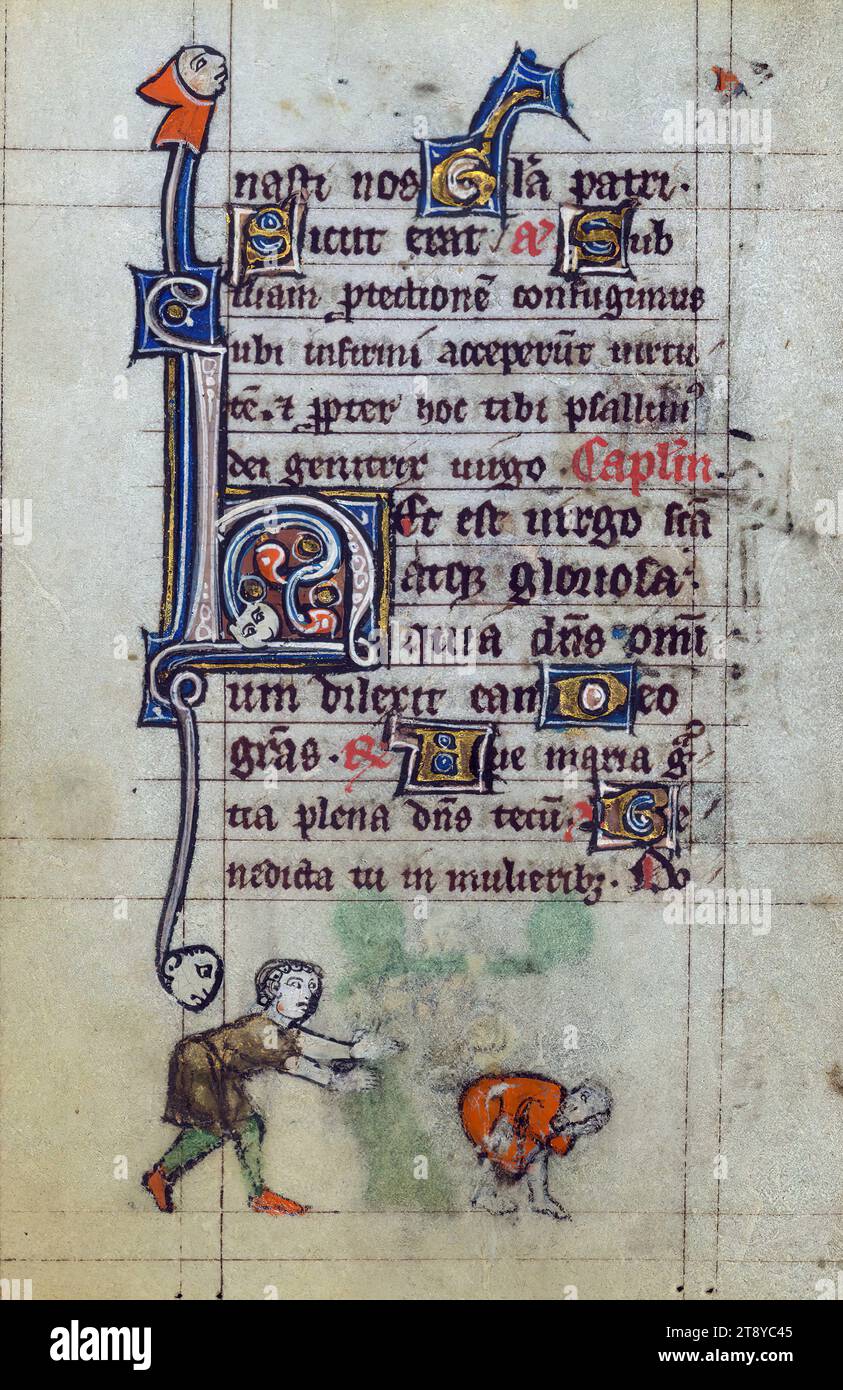 nasti nos Gl̄a patri.
Sicut erat. a͞ Sub
tuam ꝓtectionē confugimus
ubi infirmi acceperūt uirtu
tē. ⁊ ꝓpter hoc tibi psallimꝰ
dei genitrix uirgo. Caplm̄.
Hec est uirgo scā
atqꝫ gloriosa.
quia dn̄s omi
um dilexit eam Deo
grās. ℟ Aue maria gͣ
tia plena dn̄s tecū. ℣ Be
nedicta tu in mulieribꝫ. Do
alamy
Image ID: 2T8YC45
www.alamy.com